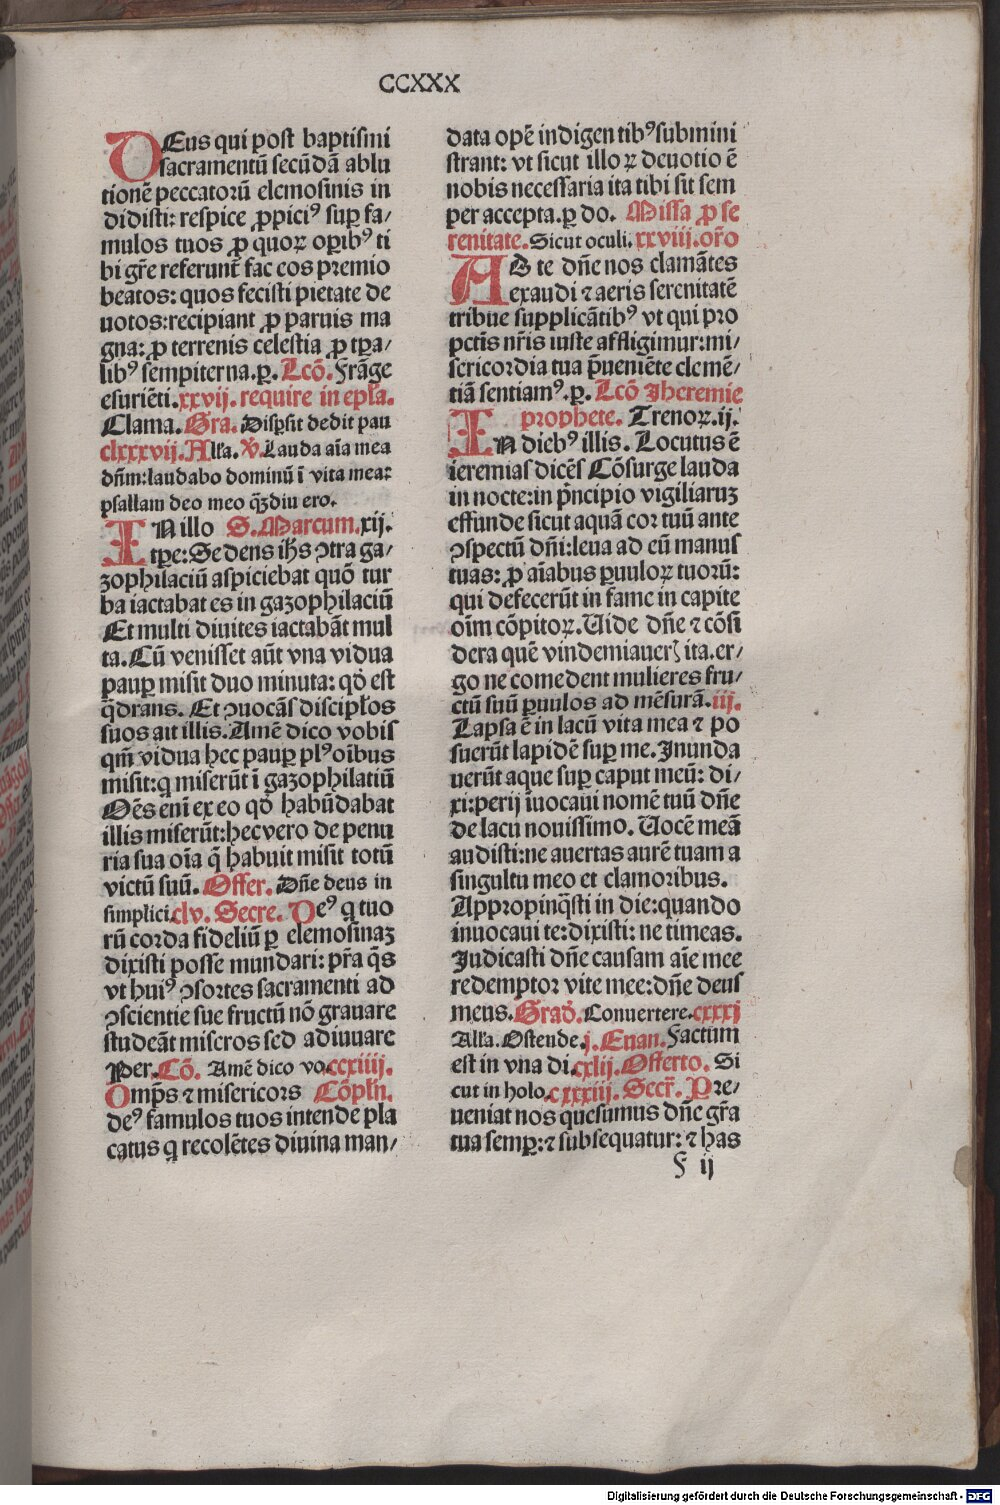 CCXXX
DEus qui post baptismi
sacramentū secūdā ablu
tionē peccatorū elemosinis in
didisti: respice ꝓpici⁹ suꝑ fa/
mulos tuos ꝓ quoꝝ oꝑib⁹ ti
bi gr̄e referunt̄ fac eos premio
beatos: quos fecisti pietate de
uotos: recipiant ꝓ paruis ma
gna: ꝓ terrenis celestia ꝓ tꝑa/
lib⁹ sempiterna.ꝑ. Lcō. Frāge
esuriēti. xxvij. require in epl̄a.
Clama. Gra. Disꝑsit dedit pau
clxxxvij. All̄a. ℣. Lauda aīa mea
dn̄m: laudabo dominū ī vita mea:
psallam deo meo qᷓdiu ero.
IN illo S. Marcum. xij.
tꝑe: Sedens ih̄s ꝯtra ga/
zophilaciū aspiciebat quō tur
ba iactabat es in gazophilaciū
Et multi diuites iactabāt mul
ta. Cū venisset aūt vna vidua
pauꝑ misit duo minuta: qd̄ est
q̄drans. Et ꝯuocās discipl̄os
suos ait illis. Amē dico vobis
qm̄ vidua hec pauꝑ pl⁹ oībus
misit: q̄ miserūt ī gazophilatiū
Oēs enī ex eo qd̄ habūdabat
illis miserūt: hec vero de penu
ria sua oīa q̄ habuit misit totū
victū suū. Offer. Dn̄e deus in
simplici. clv. Secre. De⁹ q̄ tuo
rū corda fideliū ꝑ elemosinaꝫ
dixisti posse mundari: pr̄a q̄s
vt hui⁹ ꝯsortes sacramenti ad
ꝯscientie sue fructū nō grauare
studeāt miseros sed adiuuare
Per. Cō. Amē dico vo. ccxiiij.
Omp̄s ⁊ misericors Cōpl̄n.
de⁹ famulos tuos intende pla
catus q̄ recolētes diuina man/
data opē indigentib⁹ submini
strant: vt sicut illoꝝ deuotio ē
nobis necessaria ita tibi sit sem
per accepta. ꝑ do. Missa ꝓ se
renitate. Sicut oculi. xxviii. or̄o
AD te dn̄e nos clamātes
exaudi ⁊ aeris serenitatē
tribue supplicātib⁹ vt qui pro
pctīs nr̄is iuste affligimur: mi/
sericordia tua p̄ueniēte clemē/
tiā sentiam⁹. ꝑ. Lcō Jheremie
prophete. Trenoꝝ. ij.
IN dieb⁹ illis. Locutus ē
ieremias dicēs Cōsurge lauda
in nocte: in p̄ncipio vigiliaruꝫ
effunde sicut aquā cor tuū ante
ꝯspectū dn̄i: leua ad eū manus
tuas: ꝓ aīabus ꝑuuloꝝ tuorū:
qui defecerūt in fame in capite
oīm cōpitoꝝ. Uide dn̄e ⁊ cōsi
dera quē vindemiauerꝭ ita. er/
go ne comedent mulieres fru/
ctū suū ꝑuulos ad mēsurā. iij.
Lapsa ē in lacū vita mea ⁊ po
suerūt lapidē suꝑ me. Inunda
uerūt aque suꝑ caput meū: di/
xi: perij īuocaui nomē tuū dn̄e
de lacu nouissimo. Uocē meā
audisti: ne auertas aurē tuam a
singultu meo et clamoribus.
Appropinq̄sti in die: quando
inuocaui te: dixisti: ne timeas.
Judicasti dn̄e causam aīe mee
redemptor vite mee: dn̄e deus
meus. Grad̄. Conuertere. cxxxj
All̄a. Ostende. j. Euan. Factum
est in vna di. cxlij. Offerto. Si
cut in holo. cxxxiij. Secr̄. Pre/
ueniat nos quesumus dn̄e gr̄a
tua semꝑ: ⁊ subsequatur: ⁊ has
F ij
Digitalisierung gefördert durch die Deutsche Forschungsgemeinschaft - DFG